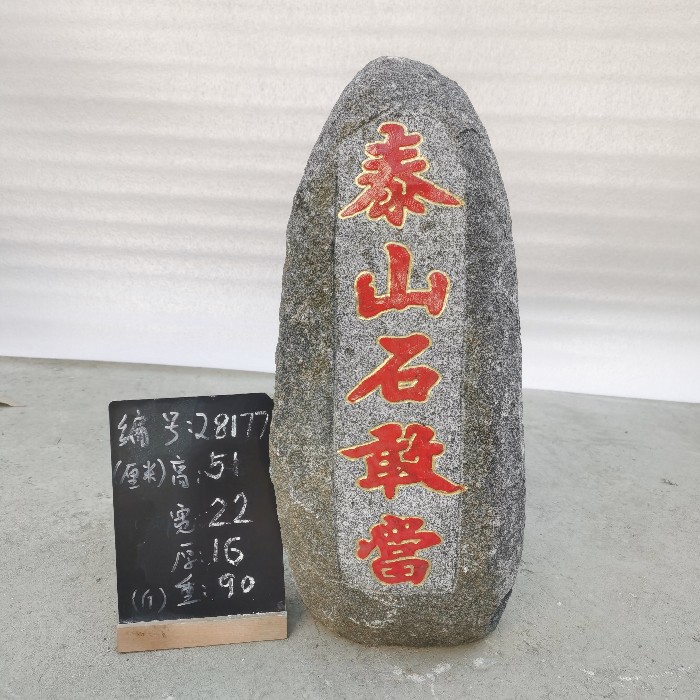 泰山石敢當
编号:28177
(厘米)高:51
宽:22
厚:16
(斤)重:90